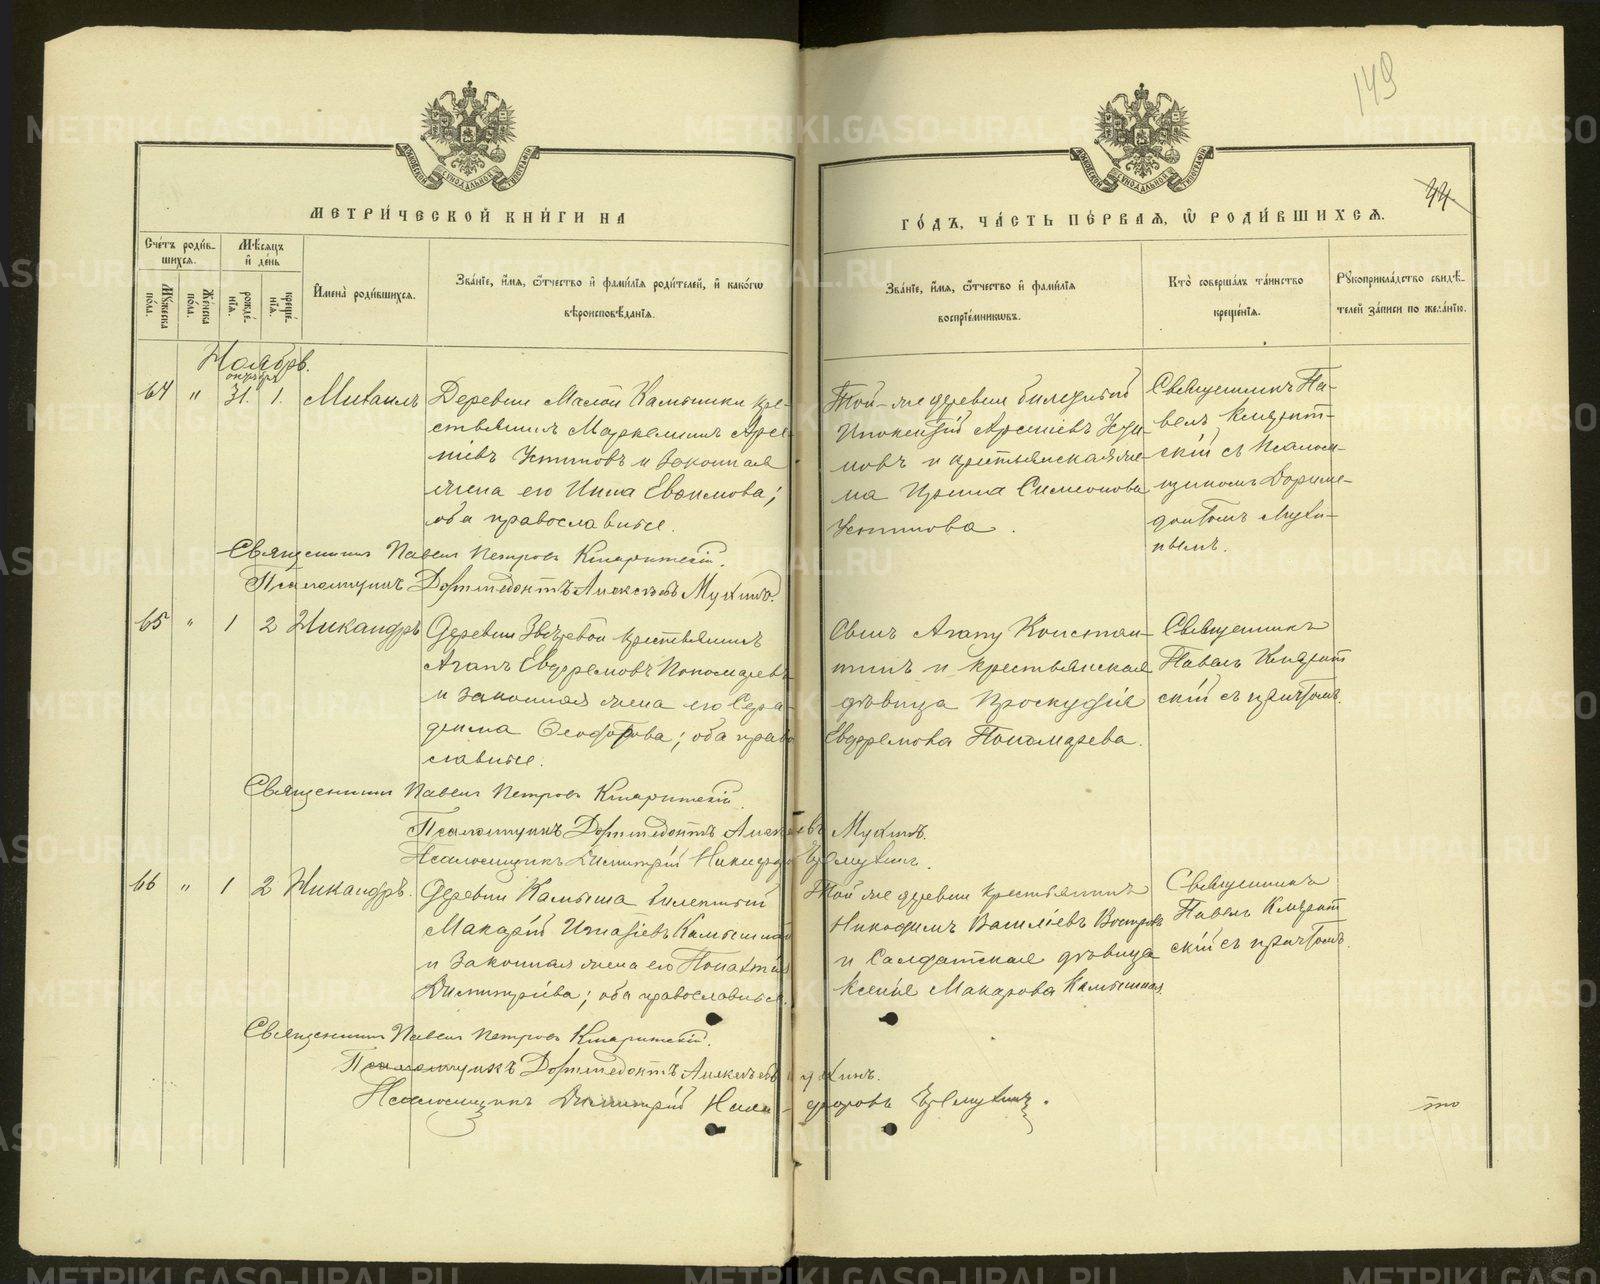 149
44
МЕТРИ́ЧЕСКОЙ КНИ́ГИ НА
ГО́ДЪ, ЧА́СТЬ ПЕ́РВАЯ, Ѡ РОДИ́ВШИХСЯ.
Сче́тъ роди́в-
шихся.
Му́жеска по́ла.
Же́нска по́ла.
Мѣ́сяцъ и де́нь
рожде́нїя.
креще́нїя.
Имена̀ роди́вшихся.
Зва́нїе, и́мя, ѻ́тчество и фами́лїя роди́телей, и како́гѡ
вѣроисповѣ́данїя.
Зва́нїе, и́мя, ѻ́тчество и фами́лїя
воспрїе́мникѡвъ.
Кто̀ соверша́лъ та́инство
креще́нїя.
Рукоприкла́дство свидѣ́-
телей за́писи по жела́нїю.
Ноябрь.
октября
64 " 31. 1. Михаилъ
Деревни Малой Камышки кре-
стьянинъ Маркелъ Арсе-
ніевъ Устиновъ и законная
жена его Нина Евѳимова;
оба православные.
Той-же деревни билетный
Арсеніевъ Усти-
новъ и крестьянская же-
на Ирина Симеонова
Устинова.
Священникъ Па-
велъ
скій съ Псалом-
щикомъ Дориме-
донтомъ Мухи-
нымъ.
Священникъ Павелъ Петровъ
Псаломщикъ Доримедонтъ Алексѣевъ Мухинъ.
65 " 1 2 Никандръ
Деревни крестьянинъ
Агапъ Евдремовъ Пономаревъ
и законная жена его Сера-
фима Ѳеодорова; оба право
славные.
Сынъ Агапу Констан-
тинъ и крестьянская
дѣвица
Пономарева.
Священникъ
Павелъ
скій съ причтомъ.
Священникъ Павелъ Петровъ
Псаломщикъ Доримедонтъ Алексѣевъ Мухинъ.
Псаломщикъ Димитрій Никифоровъ
66 " 1 2 Никандръ.
Деревни Камыша билетный
Макарій Игнатіевъ
и законная жена его
Димитріева; оба православные.
Той же деревни крестьянинъ
Никодимъ Василіевъ
и Солдатская дѣвица
Ксенія Макарова Камышная
Священникъ
Павелъ
скій съ причтомъ.
Священникъ Павелъ Петровъ
Псаломщикъ Доримедонтъ Алексѣевъ Мухинъ.
Псаломщикъ Димитрій Ники-форовъ
METRIKI.GASO-URAL.RU